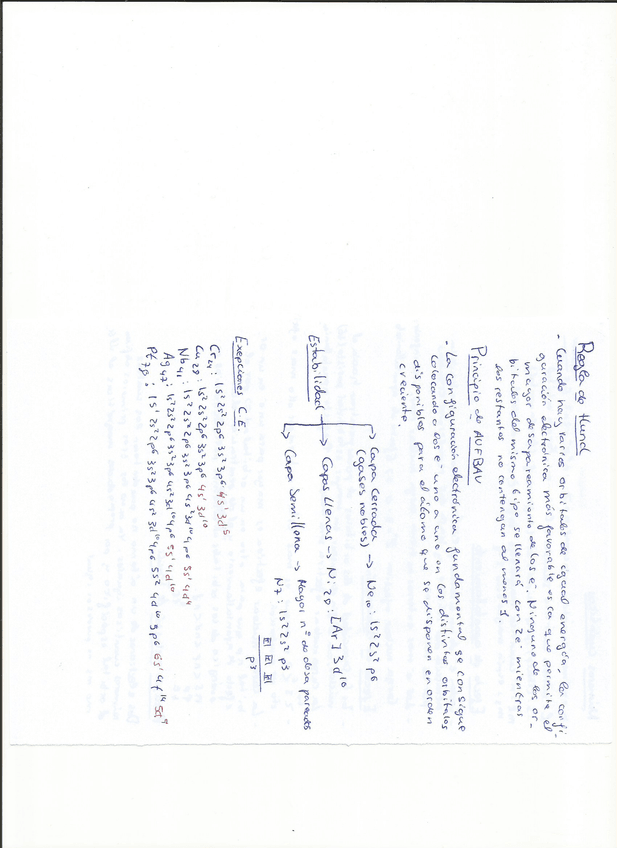 Regla de Hund
- Cuando hay varios orbitales de igual energía. La confi-
guración electrónica más favorable es la que permite el
mayor desapareamiento de los e⁻. Ninguno de los or-
bitales del mismo tipo se llenará con 2e⁻ mientras
los restantes no contengan al menos 1.
Principio de AUFBAU
- La configuración electrónica fundamental se consigue
colocando a los e⁻ uno a uno en los distintos orbitales
disponibles para el átomo que se disponen en orden
creciente.
Estabilidad
Capa Cerrada → Ne₁₀: 1s²2s²p⁶
(gases nobles)
Capas Llenas → Ni₂₈: [Ar] 3d¹⁰
Capa Semillena → Mayor nº de desapareados
N₇: 1s²2s²p³
p³
Exepciones C.E.
Cr₂₄: 1s²2s²2p⁶3s²3p⁶4s¹3d⁵
Cu₂₉: 1s²2s²2p⁶3s²3p⁶4s¹3d¹⁰
Nb₄₁: 1s²2s²2p⁶3s²3p⁶4s²3d¹⁰4p⁶5s¹4d⁴
Ag₄₇: 1s²2s²2p⁶3s²3p⁶4s²3d¹⁰4p⁶5s¹4d¹⁰
Pt₇₈: 1s¹2s²2p⁶3s²3p⁶4s²3d¹⁰4p⁶5s²4d¹⁰5p⁶6s¹4f¹⁴5d⁹